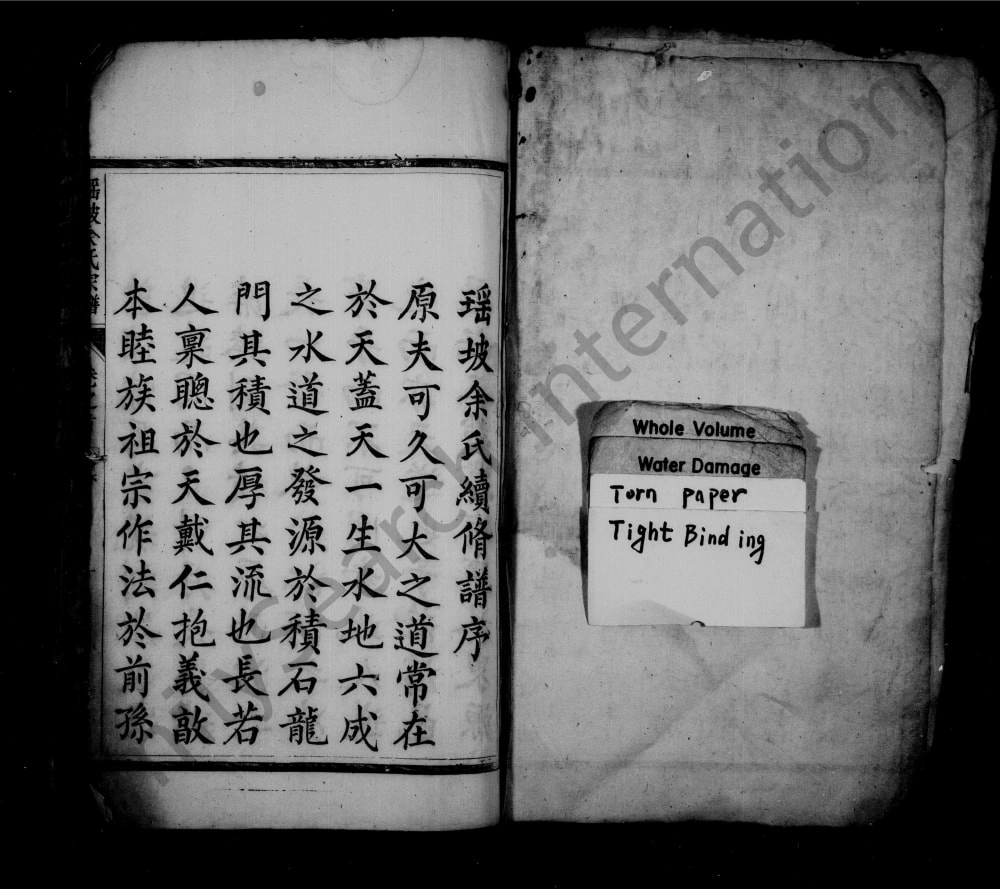 Whole Volume
Water Damage
Torn paper
Tight Binding
瑶坡余氏續脩譜序
原夫可久可大之道常在
於天蓋天一生水地六成
之水道之發源於積石龍
門其積也厚其流也長若
人稟聰於天戴仁抱義敦
本睦族祖宗作法於前孫
瑶坡余氏宗譜
MySearch International